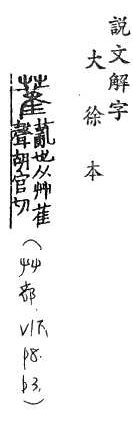 說文解字
大徐本
薍也从艸雈
聲胡官切
(艸部. V1下. p8. b3.)